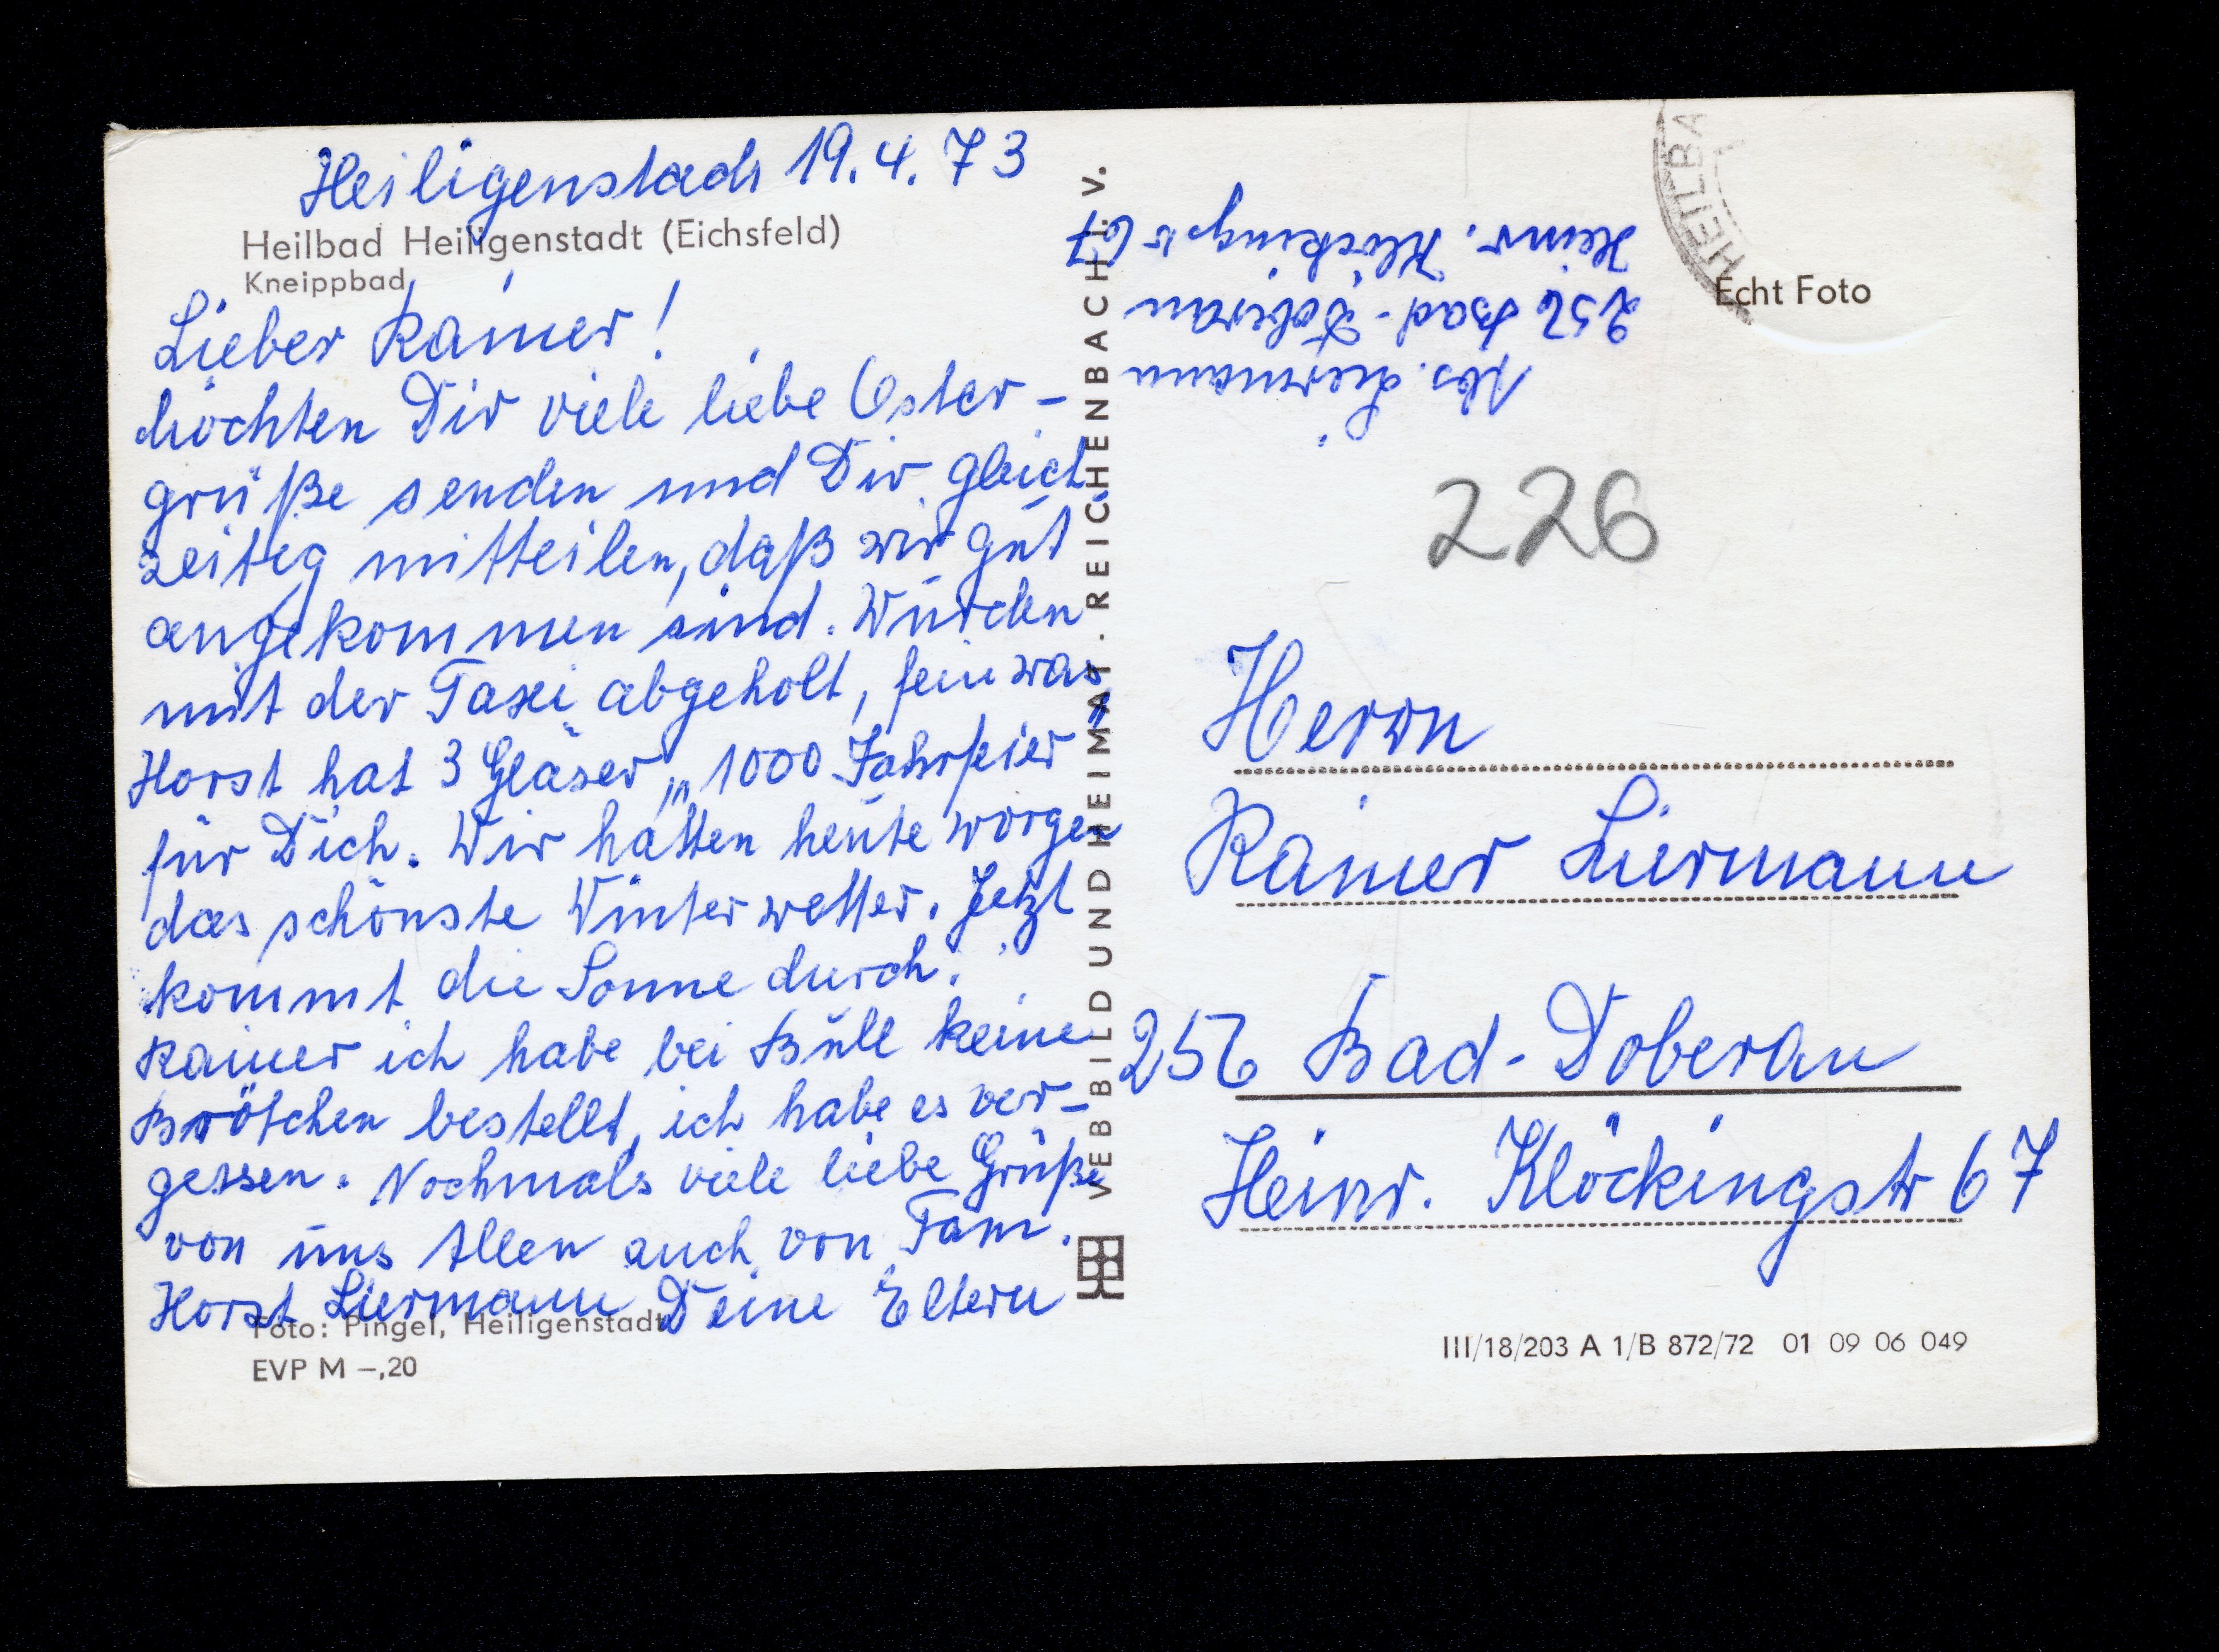 Heiligenstadt 19.4.73
Heilbad Heiligenstadt (Eichsfeld)
Kneippbad
Lieber Rainer!
möchten Dir viele liebe Oster-
grüße senden und Dir gleich-
zeitig mitteilen, daß wir gut
angekommen sind. Wurden
mit der Taxi abgeholt, fein was
Horst hat 3 Gläser „1000 Jahrfeier"
für Dich. Wir hatten heute morgen
das schönste Winterwetter. Jetzt
kommt die Sonne durch.
Rainer ich habe bei Büll keine
Brötchen bestellt, ich habe es ver-
gessen. Nochmals viele liebe Grüße
von uns Allen auch von Fam.
Horst Liermann Deine Eltern
Foto: Pingel, Heiligenstadt
EVP M –,20
VEB BILD UND HEIMAT · REICHENBACH i. V.
Abs. Liermann
256 Bad-Doberan
Heinr. Klöckingstr 67
HEILBA
Echt Foto
226
Herrn
Rainer Liermann
256 Bad-Doberan
Heinr. Klöckingstr 67
III/18/203 A 1/B 872/72 01 09 06 049